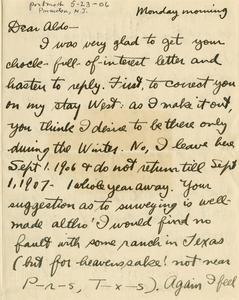 postmark 5-23-06
Princeton, N.J.
Monday morning
Dear Aldo-
I was very glad to get your
chock-full-of-interest letter and
hasten to reply. First, to correct you
on my stay West: as I make it out,
you think I desire to be there only
during the Winter. No, I leave here
Sept 1, 1906 & do not return till Sept
1, 1907 - 1 whole year away. Your
suggestion as to surveying is well-
made altho' I would find no
fault with some ranch in Texas
(but for heavens sake! not near
P-r-s, T-x-s). Again I feel